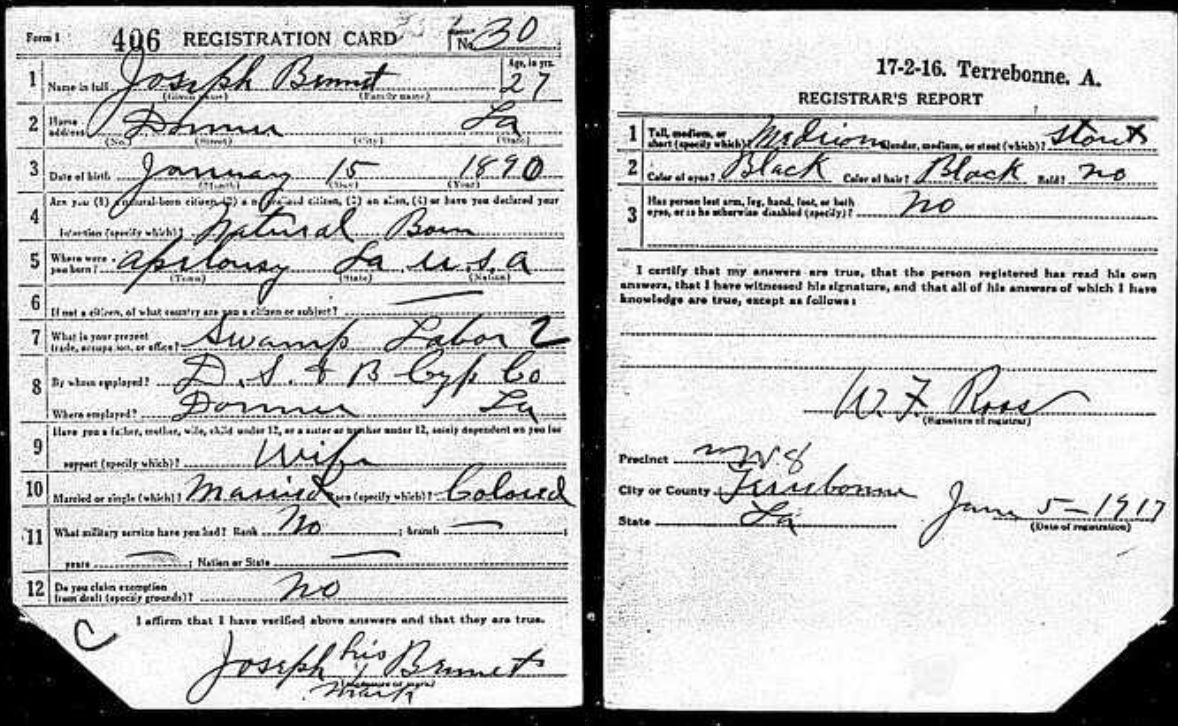 Form 1 406 REGISTRATION CARD No. 30
1 Name in full Joseph Bennet Age, in yrs. 27
(Given name) (Family name)
2 Home address Donner La
(No.) (Street) (City) (State)
3 Date of birth January 15 1890
(Month) (Day) (Year)
4 Are you (1) a natural-born citizen, (2) a naturalized citizen, (3) an alien, (4) or have you declared your
intention (specify which)? Natural Born
5 Where were you born? Apelousy La U.S.A
(Town) (State) (Nation)
6 If not a citizen, of what country are you a citizen or subject? —
7 What is your present trade, occupation, or office? Swamp Labor 2
8 By whom employed? D. S. & B Cyp Co
Where employed? Donner La
9 Have you a father, mother, wife, child under 12, or a sister or brother under 12, solely dependent on you for
support (specify which)? Wife
10 Married or single (which)? Married Race (specify which)? Colored
11 What military service have you had? Rank No ; branch — ;
years — ; Nation or State —
12 Do you claim exemption from draft (specify grounds)? No
I affirm that I have verified above answers and that they are true.
C
Joseph his Bennet
mark
(Signature or mark)
17-2-16. Terrebonne. A.
REGISTRAR'S REPORT
1 Tall, medium, or short (specify which)? Medium Slender, medium, or stout (which)? Stout
2 Color of eyes? Black Color of hair? Black Bald? No
3 Has person lost arm, leg, hand, foot, or both eyes, or is he otherwise disabled (specify)? No
I certify that my answers are true, that the person registered has read his own
answers, that I have witnessed his signature, and that all of his answers of which I have
knowledge are true, except as follows:
W. F. Ross
(Signature of registrar)
Precinct 8
City or County Terrebonne
State La
June 5-1917
(Date of registration)